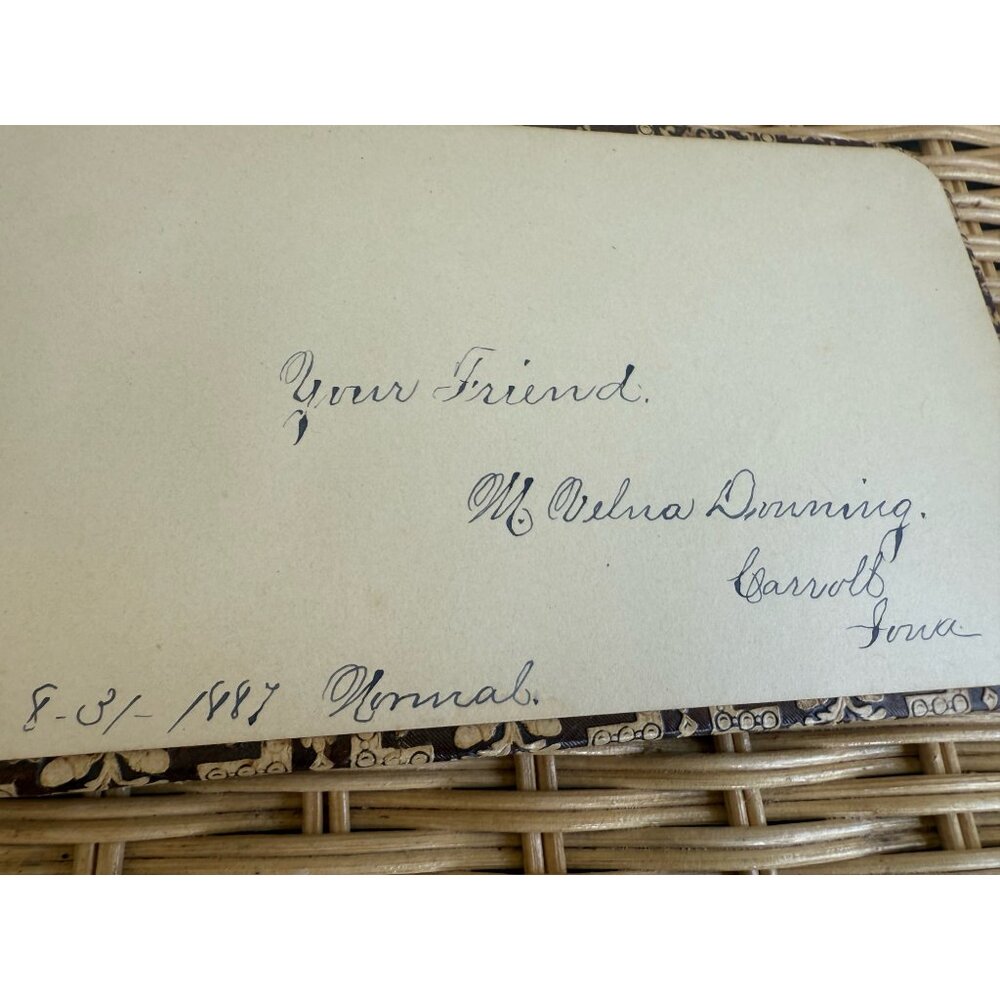 Your Friend.
M. Velna Downing.
Carroll
Iowa
8-31-1887 Normal.